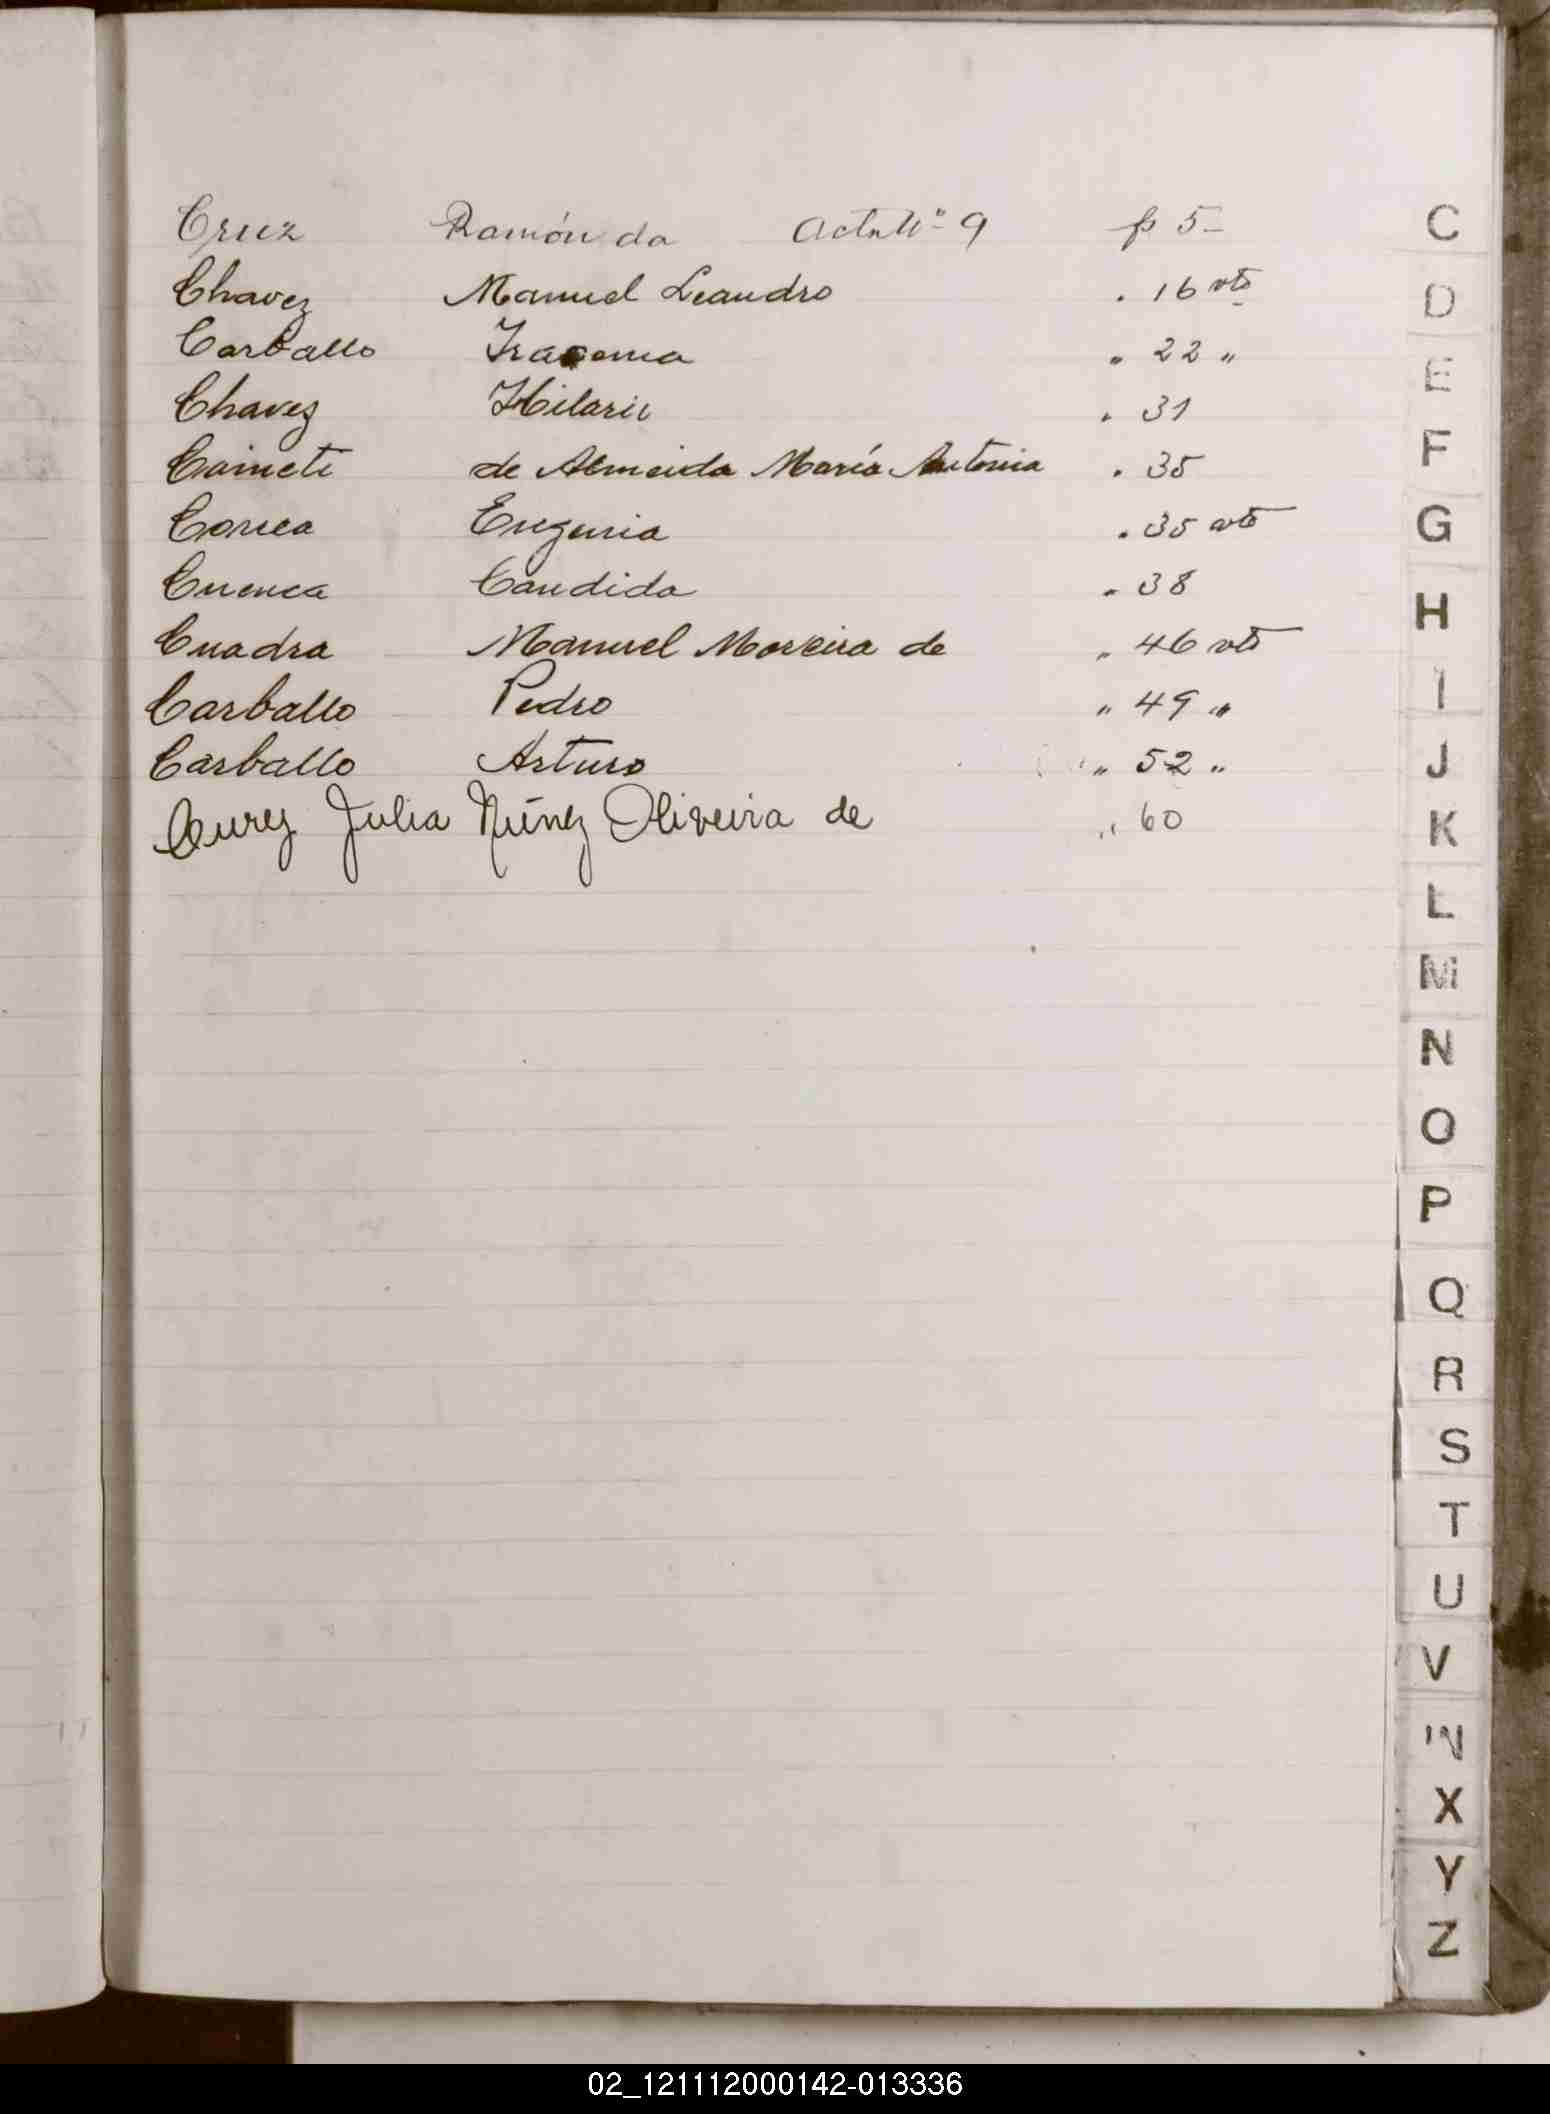 Cruz Ramón da Acta Nº 9 p 5-
Chavez Manuel Leandro . 16 vto
Carballo Iracema " 22 "
Chavez Hilario . 31
de Almeida María Antonia . 35
Correa Eugenia . 35 vto
Cuenca Candida " 38
Cuadra Manuel Moreira de " 46 vto
Carballo Pedro " 49 "
Carballo Arturo " 52 "
Julia Núnez Oliveira de " 60
C
D
E
F
G
H
I
J
K
L
M
N
O
P
Q
R
S
T
U
V
W
X
Y
Z
02_121112000142-013336